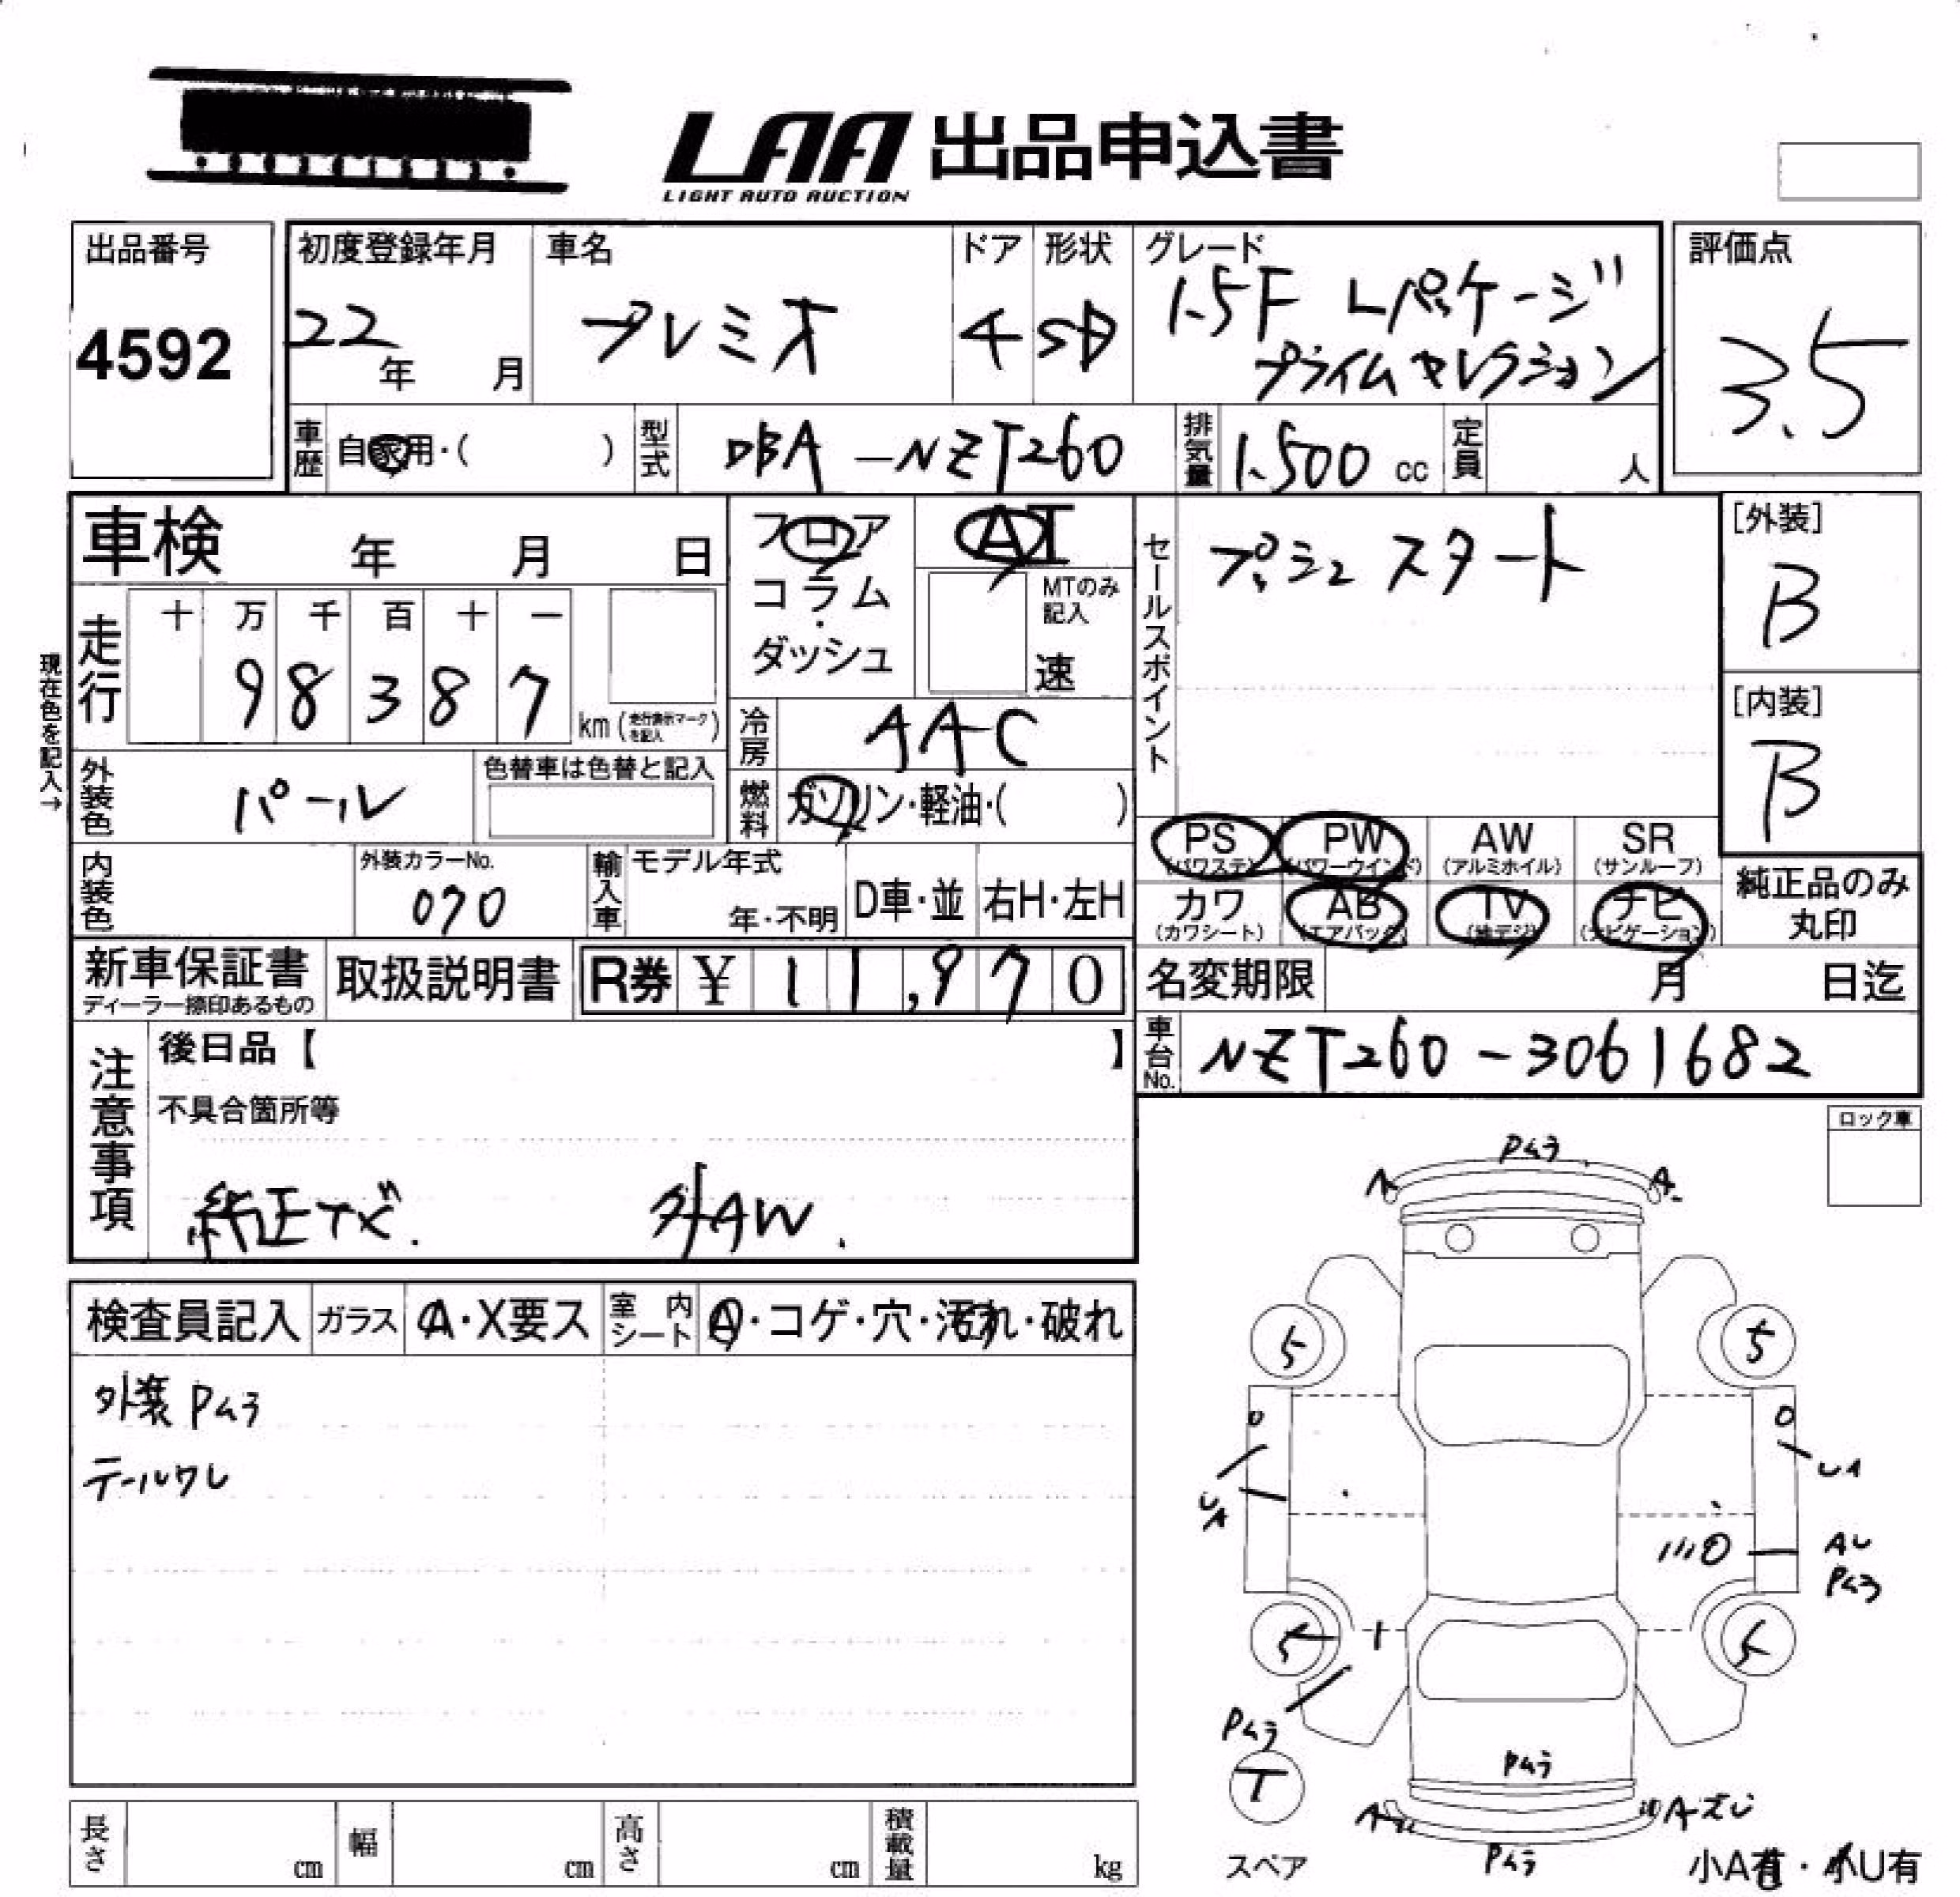 LAA 出品申込書
LIGHT AUTO AUCTION
出品番号
4592
初度登録年月
22
年 月
車名
プレミオ
ドア
4
形状
SD
グレード
1.5F Lパッケージ
プライムセレクション
評価点
3.5
車歴
自家用・( )
型式
DBA-NZT260
排気量
1.500 cc
定員
人
車検 年 月 日
フロア
コラム
・
ダッシュ
AT
MTのみ
記入
速
セールスポイント
プッシュ スタート
[外装]
B
[内装]
B
現在色を記入→
走行
十 万 千 百 十 一
9 8 3 8 7
km (走行表示マークを記入)
冷房
AAC
外装色
パール
色替車は色替と記入
燃料
ガソリン・軽油・( )
PS
(パワステ)
PW
(パワーウインド)
AW
(アルミホイル)
SR
(サンルーフ)
内装色
外装カラーNo.
070
輸入車
モデル年式
年・不明
D車・並
右H・左H
カワ
(カワシート)
AB
(エアバック)
TV
(地デジ)
ナビ
(ナビゲーション)
純正品のみ
丸印
新車保証書
ディーラー捺印あるもの
取扱説明書
R券 ¥ 11,970
名変期限 月 日迄
車台No.
NZT260-3061682
注意事項
後日品【 】
不具合箇所等
純正ナビ. 外AW.
ロック車
検査員記入
ガラス
A・X要ス
室内シート
A・コゲ・穴・汚れ・破れ
外装 Pムラ
テールワレ
Pムラ
A A
5 5
UA UA
AU
Pムラ
5 5
Pムラ
T
Pムラ
A
Pムラ
スペア
小A有・小U有
長さ cm
幅 cm
高さ cm
積載量 kg